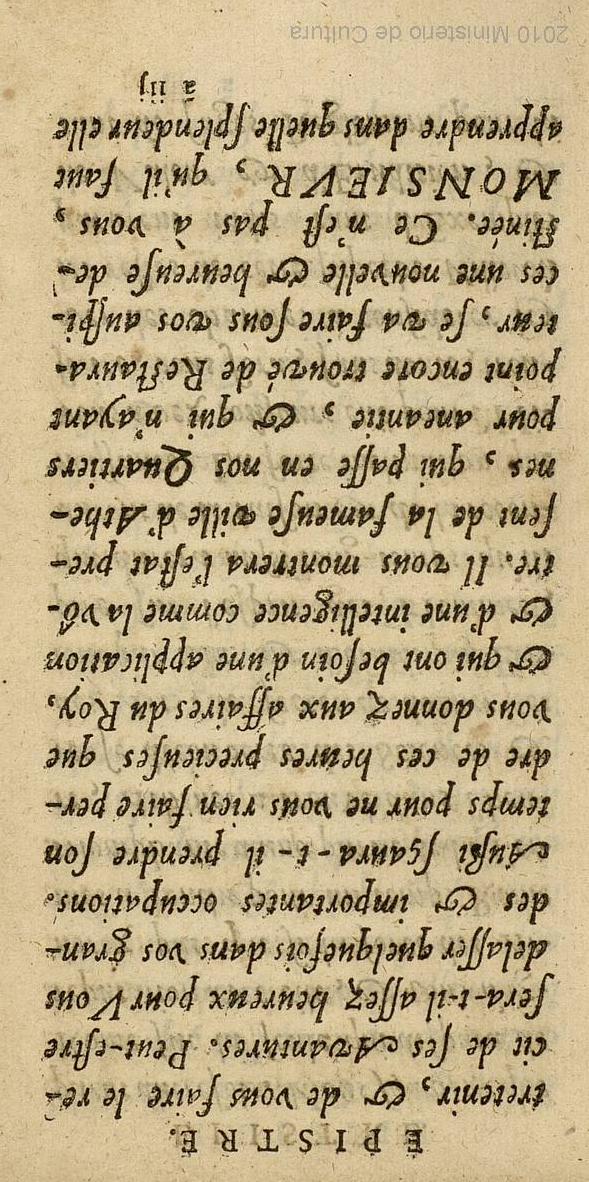 EPISTRE.
tretenir, & de vous faire le ré-
cit de ses Avantures. Peut-estre
sera-t-il assez heureux pour Vous
delasser quelquefois dans vos gran-
des & importantes occupations.
Aussi sçaura-t-il prendre son
temps pour ne vous rien faire per-
dre de ces heures precieuses que
vous donnez aux affaires du Roy,
& qui ont besoin d'une application
& d'une intelligence comme la vô-
tre. Il vous montrera l'estat pre-
sent de la fameuse ville d'Athe-
nes, qui passe en nos Quartiers
pour aneantie, & qui n'ayant
point encore trouvé de Restaura-
teur, se va faire sous vos auspi-
ces une nouvelle & heureuse de-
stinée. Ce n'est pas à vous,
MONSIEVR, qu'il faut
apprendre dans quelle splendeur elle
ã iij
2010 Ministerio de Cultura